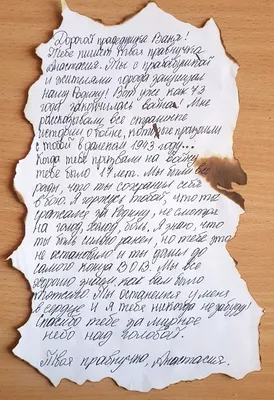 Дорогой прадедушка Ваня!
Тебе пишет твоя правнучка
Анастасия. Мы с прабабушкой
и жителями города защищал
нашу Родину! Вот уже как 73
года закончилась война! Мне
рассказывали, все страшние
истории о войне, произошли
с тобой в далеком 1943 году...
Когда тебя призвали на войну
тебе было 17 лет. Мы были все
рады, что ты сохранил себя
в бою. Я горжусь тобой, что ты
сражался за Родину, не смотря
на голод, холод, боль. Я знаю, что
ты был сильно ранен, но тебя это
не остановило и ты дошел до
самого конца ВОВ. Мы все
знаем, как вам было
Мы останешся у меня
в сердце и я тебя никогда не забуду!
Спасибо тебе за мирное
небо над головой.
Твоя правнучка, Анастасия.